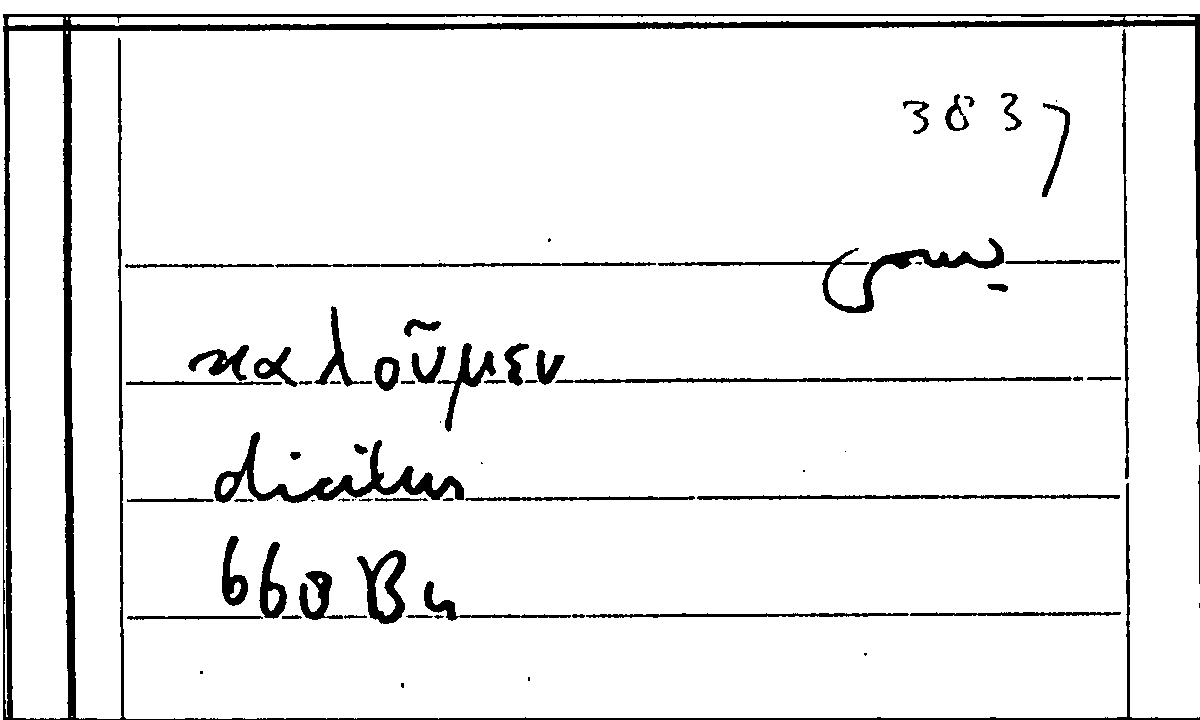 3837
καλοῦμεν
dicitur
668 B 4